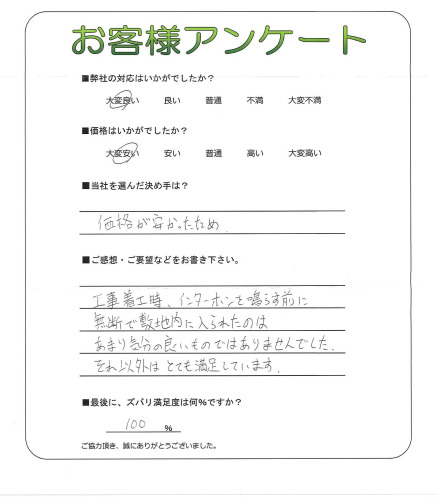 お客様アンケート
■弊社の対応はいかがでしたか?
大変良い 良い 普通 不満 大変不満
■価格はいかがでしたか?
大変安い 安い 普通 高い 大変高い
■当社を選んだ決め手は?
価格が安かったため.
■ご感想・ご要望などをお書き下さい。
工事着工時、インターホンを鳴らす前に
無断で敷地内に入られたのは
あまり気分の良いものではありませんでした.
それ以外はとても満足しています.
■最後に、ズバリ満足度は何%ですか?
100 %
ご協力頂き、誠にありがとうございました。